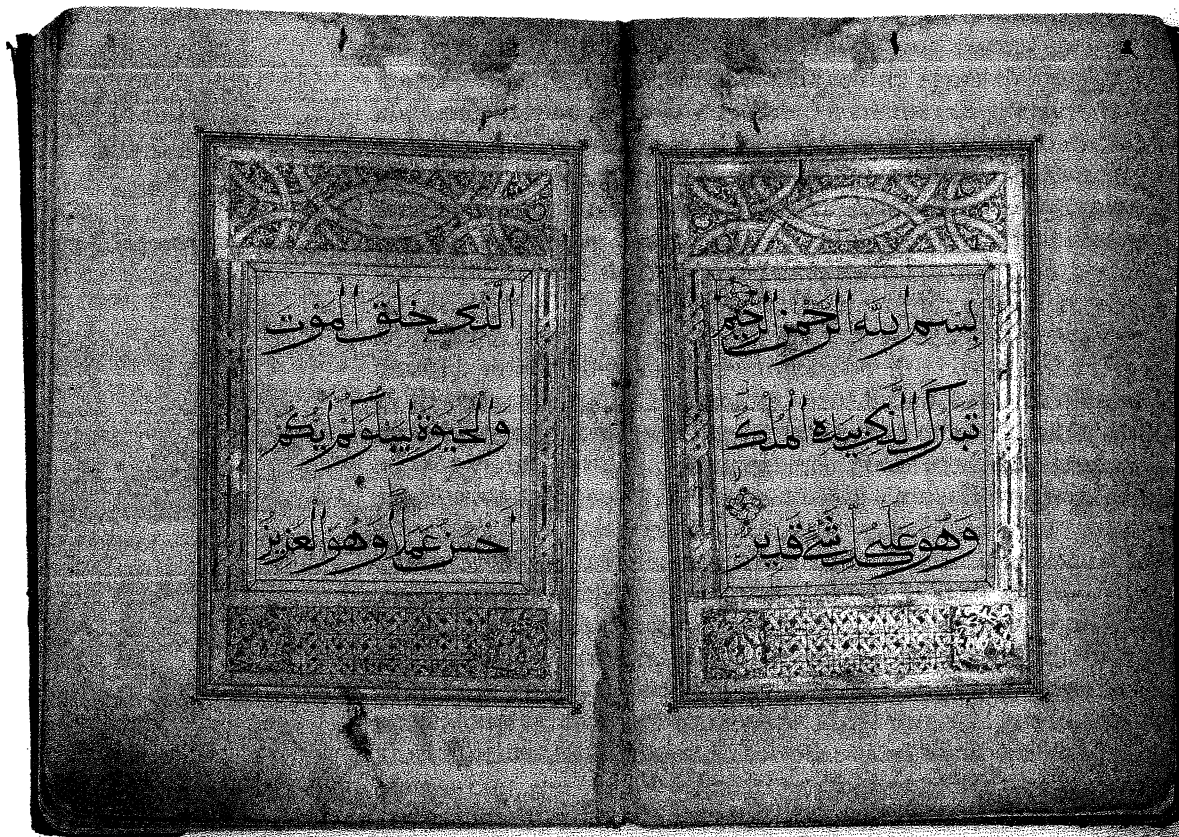 بسم الله الرحمن الرحيم
تبارك الذي بيده الملك
وهو على كل شيء قدير
الذي خلق الموت
والحيوة ليبلوكم أيكم
أحسن عملا وهو العزيز